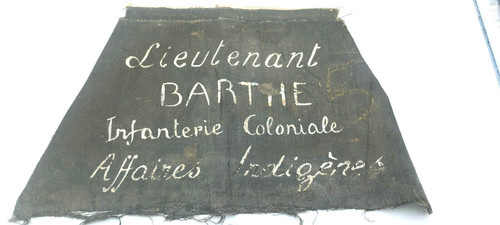 Lieutenant
BARTHE
Infanterie Coloniale
Affaires Indigènes